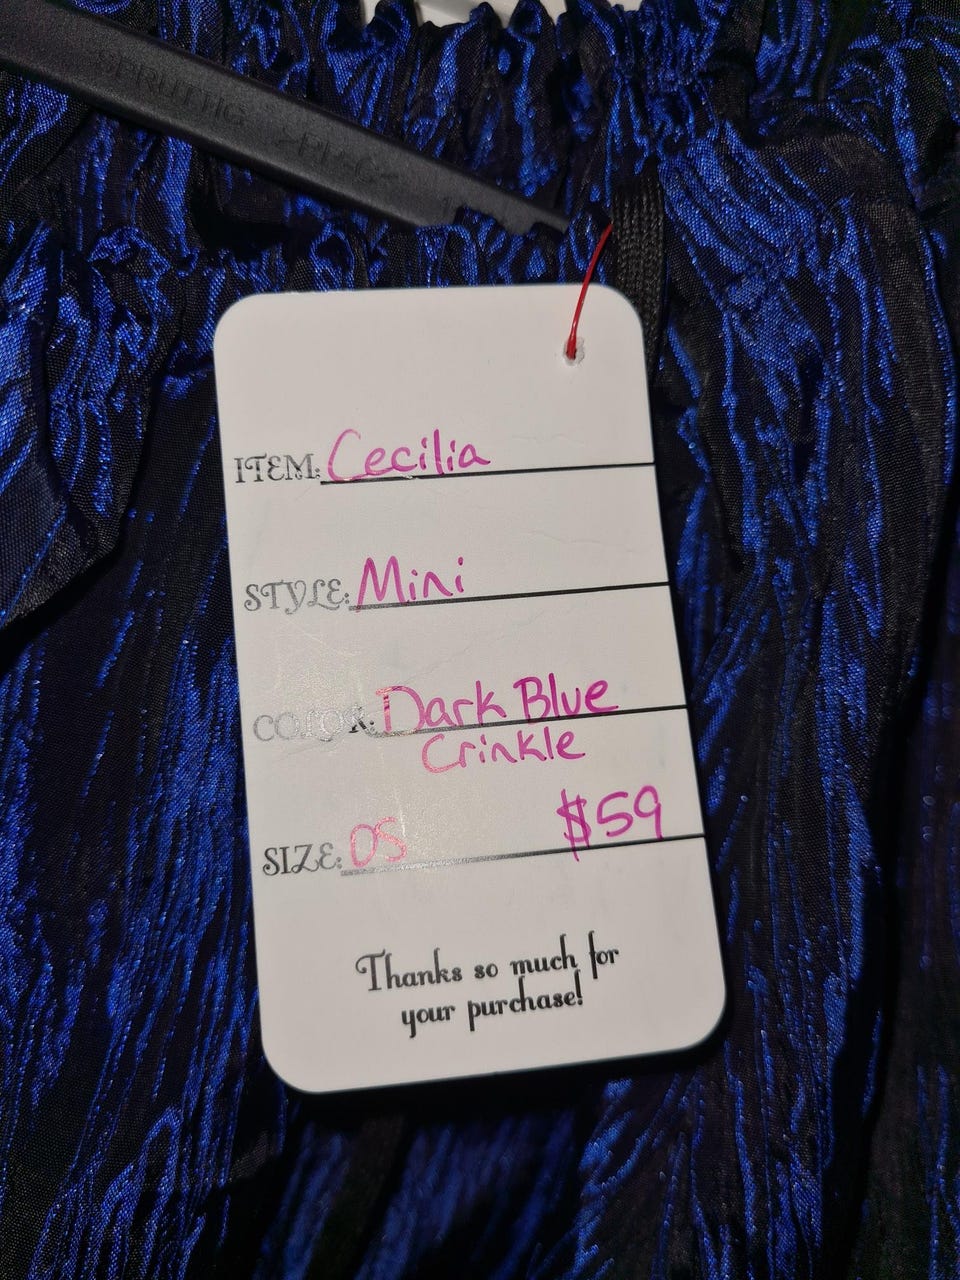 SPRUTTIG >PP<
ITEM: Cecilia
STYLE: Mini
COLOR: Dark Blue
Crinkle
$59
SIZE: OS
Thanks so much for
your purchase!